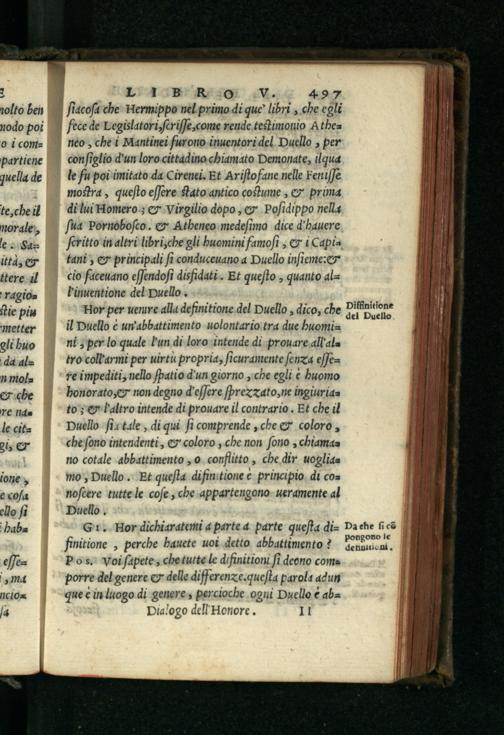 LIBRO V. 497
siacosa che Hermippo nel primo di que' libri, che egli
fece de Legislatori, scrisse, come rende testimonio Athe=
neo, che i Mantinei furono inuentori del Duello, per
consiglio d'un loro cittadino chiamato Demonate, ilqua
le fu poi imitato da Cirenei. Et Aristofane nelle Fenisse
mostra, questo essere stato antico costume, & prima
di lui Homero; & Virgilio dopo, & Posidippo nella
sua Pornobosco. & Atheneo medesimo dice d'hauere
scritto in altri libri, che gli huomini famosi, & i Capi=
tani, & principali si conduceuano a Duello insieme: &
cio faceuano essendosi disfidati. Et questo, quanto al=
l'inuentione del Duello.
Hor per uenire alla definitione del Duello, dico, che
il Duello è un'abbattimento uolontario tra due huomi=
ni, per lo quale l'un di loro intende di prouare all'al=
tro coll'armi per uirtù propria, sicuramente senza esse=
re impediti, nello spatio d'un giorno, che egli è huomo
honorato, & non degno d'essere sprezzato, ne ingiuria=
to; & l'altro intende di prouare il contrario. Et che il
Duello sia tale, di qui si comprende, che & coloro,
che sono intendenti, & coloro, che non sono, chiama=
no cotale abbattimento, o conflitto, che dir uoglia=
mo, Duello. Et questa difinitione è principio di co=
noscere tutte le cose, che appartengono ueramente al
Duello.
GI. Hor dichiaratemi a parte a parte questa di=
finitione, perche hauete uoi detto abbattimento?
POS. Voi sapete, che tutte le difinitioni si deono com=
porre del genere & delle differenze. questa parola adun
que è in luogo di genere, percioche ogni Duello è ab=
Dialogo dell'Honore. II
Diffinitione
del Duello
Da che si cō
pongono le
definitioni.
E
molto ben
modo poi
o i com=
partiene
quella de
ite, che il
morale,
le. Sa=
ittà, &
ttere il
e ragio=
stie piu
rmetter
gli huo
t da al=
n mol=
& che
ore na=
le cit=
gi, &
ione,
e cosa
ello si
i hab=
esse=
i, ma
ncio=
sa